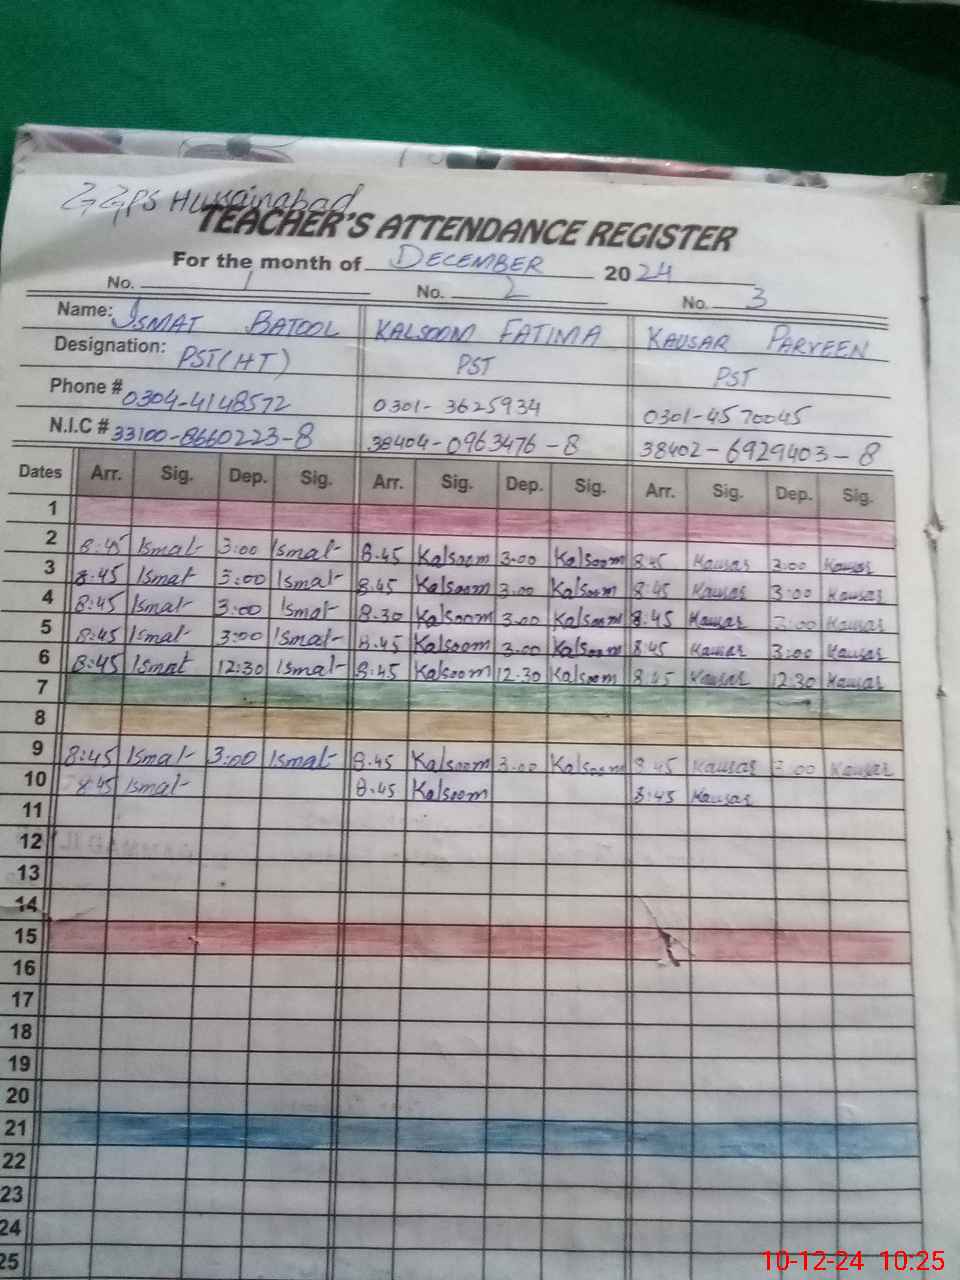 GGPS Hussainabad
TEACHER'S ATTENDANCE REGISTER
For the month of DECEMBER 2024
No. 1 No. 2 No. 3
Name: ISMAT BATOOL KALSOOM FATIMA KAUSAR PARVEEN
Designation: PST(HT) PST PST
Phone # 0304-4148572 0301-3625934 0301-4570045
N.I.C # 33100-8660223-8 38404-0963476-8 38402-6929403-8
Dates Arr. Sig. Dep. Sig. Arr. Sig. Dep. Sig. Arr. Sig. Dep. Sig.
1
2 8:45 Ismat 3:00 Ismat 8.45 Kalsoom 3.00 Kalsoom 8:45 Kausar 3:00 Kausar
3 8:45 Ismat 3:00 Ismat 8.45 Kalsoom 3.00 Kalsoom 8:45 Kausar 3:00 Kausar
4 8:45 Ismat 3:00 Ismat 8.30 Kalsoom 3.00 Kalsoom 8:45 Kausar 3:00 Kausar
5 8:45 Ismat 3:00 Ismat 8.45 Kalsoom 3.00 Kalsoom 8:45 Kausar 3:00 Kausar
6 8:45 Ismat 12:30 Ismat 8.45 Kalsoom 12.30 Kalsoom 8:45 Kausar 12:30 Kausar
7
8
9 8:45 Ismat 3:00 Ismat 8.45 Kalsoom 3.00 Kalsoom 8:45 Kausar 3:00 Kausar
10 8:45 Ismat 8.45 Kalsoom 8:45 Kausar
11
12
13
14
15
16
17
18
19
20
21
22
23
24
25
10-12-24 10:25